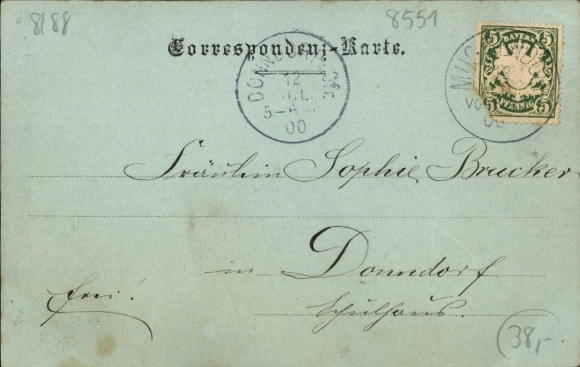 8188
8551
Correspondenz-Karte.
12
5-6
00
5 BAYERN 5
5 PFENNIG 5
VO
00
Fräulein Sophie Brucker
in Donndorf
Schulhaus.
frei!
38,-